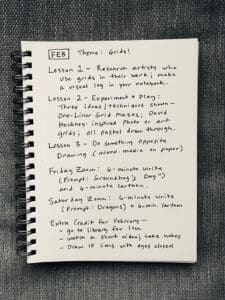 FEB Theme: Grids!
Lesson 1 - Research artists who
use grids in their work; make
a visual log in your notebook.
Lesson 2 - Experiment + Play:
Three ideas/techniques shown -
One-Liner Grid Mazes; David
Hockney-inspired Photo or art
grids; oil pastel draw through.
Lesson 3 - Do something opposite
Drawing (mixed-media on paper)
Friday Zoom: 6-minute write
(Prompt: Groundhog's Day")
and 6-minute cartoon.
Saturday Zoom: 6-minute write
(Prompt: Dragons) + 6-min. cartoon
Extra Credit for February -
- go to library for 1 hr.
- watch a short video, take notes
- Draw 10 lines with eyes closed